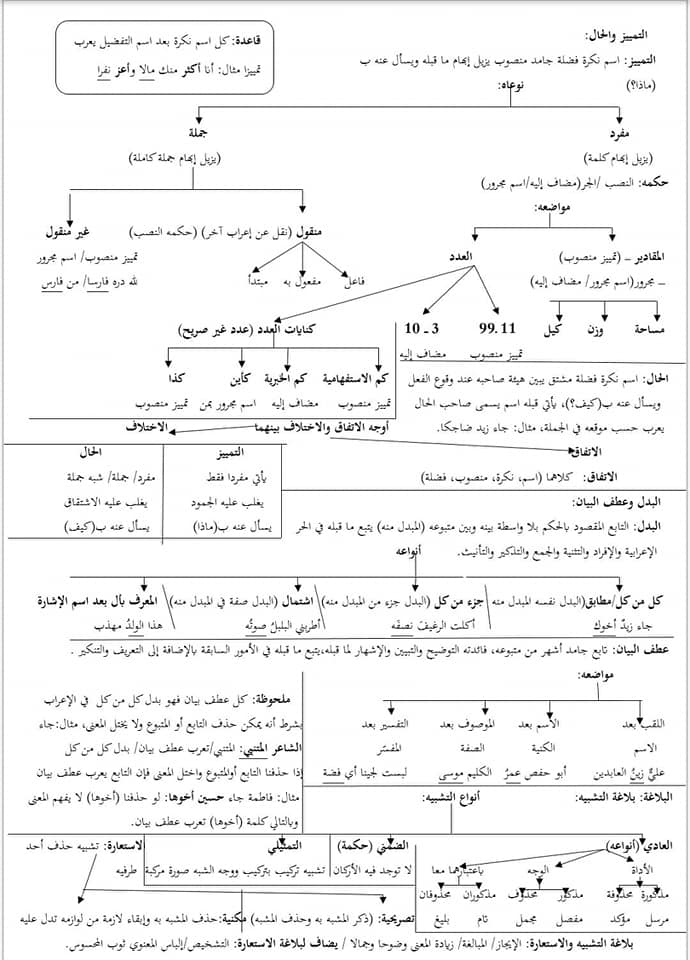 التمييز والحال:
التمييز: اسم نكرة فضلة جامد منصوب يزيل إبهام ما قبله ويسأل عنه ب
(ماذا؟)
نوعاه:
قاعدة: كل اسم نكرة بعد اسم التفضيل يعرب
تمييزا مثال: أنا أكثر منك مالا وأعز نفرا
مفرد
جملة
(يزيل إبهام كلمة)
(يزيل إبهام جملة كاملة)
حكمه: النصب /الجر(مضاف إليه/اسم مجرور)
مواضعه:
منقول (نقل عن إعراب آخر) (حكمه النصب)
غير منقول
المقادير – (تمييز منصوب)
العدد
– مجرور(اسم مجرور/ مضاف إليه)
تمييز منصوب/ اسم مجرور
فاعل مفعول به مبتدأ
لله دره فارسا/ من فارس
مساحة وزن كيل
99.11
3 - 10
تمييز منصوب
مضاف إليه
كنايات العدد (عدد غير صريح)
كم الاستفهامية كم الخبرية كأين كذا
تمييز منصوب مضاف إليه اسم مجرور بمن تمييز منصوب
الحال: اسم نكرة فضلة مشتق يبين هيئة صاحبه عند وقوع الفعل
ويسأل عنه ب(كيف؟)، يأتي قبله اسم يسمى صاحب الحال
يعرب حسب موقعه في الجملة، مثال: جاء زيد ضاحكا.
أوجه الاتفاق والاختلاف بينهما
الاختلاف
الاتفاق
الاتفاق: كلاهما (اسم، نكرة، منصوب، فضلة)
التمييز الحال
يأتي مفردا فقط مفرد/ جملة/ شبه جملة
يغلب عليه الجمود يغلب عليه الاشتقاق
يسأل عنه ب(ماذا) يسأل عنه ب(كيف)
البدل وعطف البيان:
البدل: التابع المقصود بالحكم بلا واسطة بينه وبين متبوعه (المبدل منه) يتبع ما قبله في الحر
الإعرابية والإفراد والتثنية والجمع والتذكير والتأنيث.
أنواعه
كل من كل/مطابق(البدل نفسه المبدل منه جزء من كل (البدل جزء من المبدل منه) اشتمال (البدل صفة في المبدل منه) المعرف بأل بعد اسم الإشارة
جاء زيدٌ أخوك أكلت الرغيفَ نصفَه أطربني البلبلُ صوتُه هذا الولدُ مهذب
عطف البيان: تابع جامد أشهر من متبوعه، فائدته التوضيح والتبيين والإشهار لما قبله،يتبع ما قبله في الأمور السابقة بالإضافة إلى التعريف والتنكير .
مواضعه:
اللقب بعد الاسم بعد الموصوف بعد التفسير بعد
الاسم الكنية الصفة المفسّر
عليٌّ زينُ العابدين أبو حفص عمرُ الكليم موسى لبست لجينا أي فضة
ملحوظة: كل عطف بيان فهو بدل كل من كل في الإعراب
بشرط أنه يمكن حذف التابع أو المتبوع ولا يختل المعنى، مثال:جاء
الشاعر المتنبي: المتنبي/تعرب عطف بيان/ بدل كل من كل
إذا حذفنا التابع أوالمتبوع واختل المعنى فإن التابع يعرب عطف بيان
مثال: فاطمة جاء حسين أخوها: لو حذفنا (أخوها) لا يفهم المعنى
وبالتالي كلمة (أخوها) تعرب عطف بيان.
البلاغة: بلاغة التشبيه:
أنواع التشبيه:
العادي(أنواعه) الضمني (حكمة) التمثيلي الاستعارة: تشبيه حذف أحد
لا توجد فيه الأركان تشبيه تركيب بتركيب ووجه الشبه صورة مركبة طرفيه
الأداة الوجه باعتبارهما معا
مذكورة محذوفة مذكور محذوف مذكوران محذوفان
مرسل مؤكد مفصل مجمل تام بليغ
تصريحية: (ذكر المشبه به وحذف المشبه) مكنية:حذف المشبه به وإبقاء لازمة من لوازمه تدل عليه
بلاغة التشبيه والاستعارة: الإيجاز/ المبالغة/ زيادة المعنى وضوحا وجمالا / يضاف لبلاغة الاستعارة: التشخيص/إلباس المعنوي ثوب المحسوس.